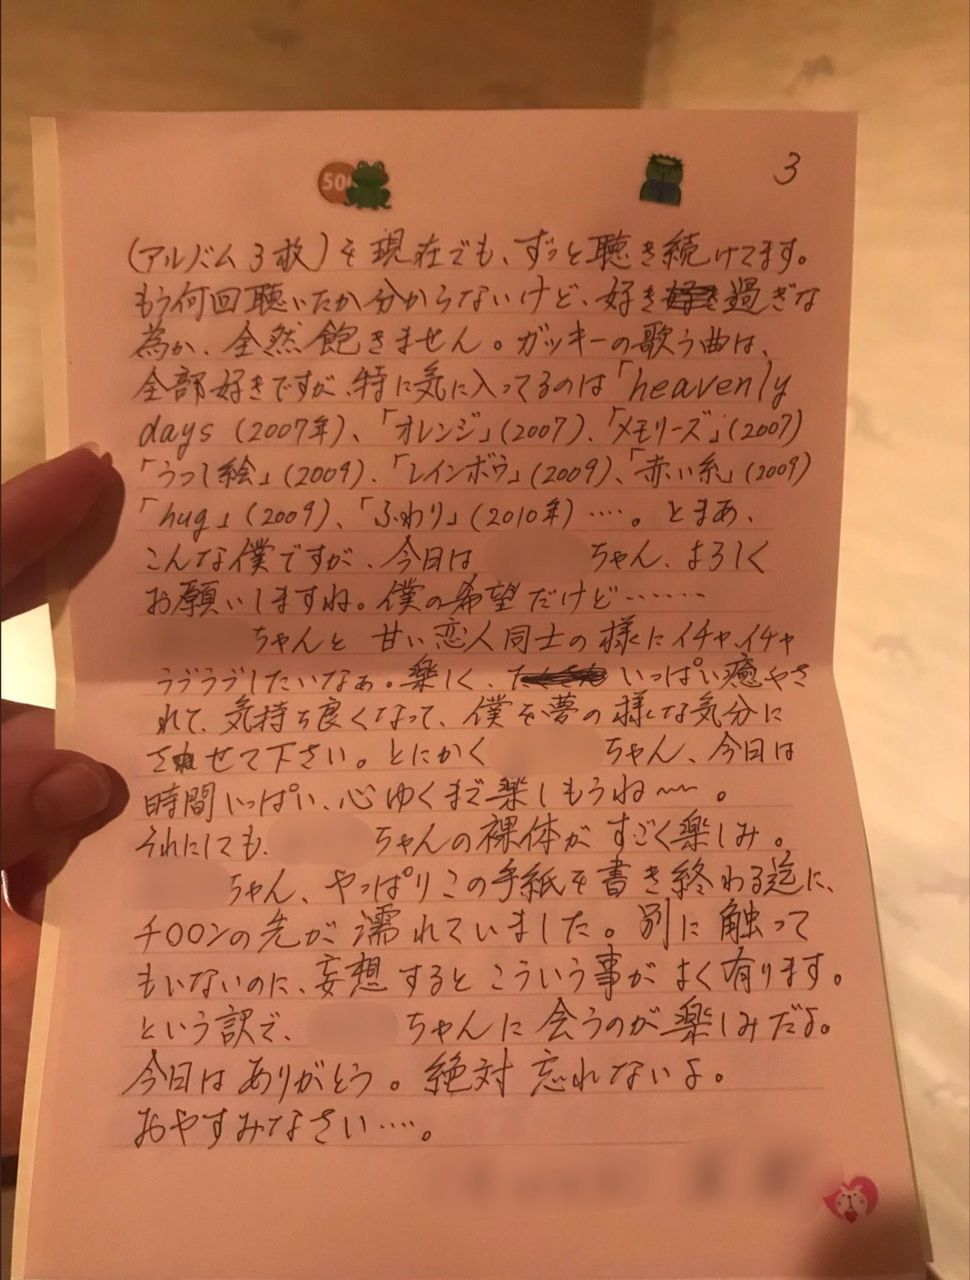 3
50
(アルバム3枚)を現在でも、ずっと聴き続けてます。
もう何回聴いたか分からないけど、好き過ぎな
為か、全然飽きません。ガッキーの歌う曲は、
全部好きですが、特に気に入ってるのは「heavenly
days (2007年)、「オレンジ」(2007)、「メモリーズ」(2007)
「うつし絵」(2009)、「レインボウ」(2009)、「赤い糸」(2009)
「hug」(2009)、「ふわり」(2010年)….。とまあ、
こんな僕ですが、今日は ちゃん、よろしく
お願いしますね。僕の希望だけど……
ちゃんと 甘い恋人同士の様にイチャイチャ
ラブラブしたいなぁ。楽しく、いっぱい癒やさ
れて、気持ち良くなって、僕を夢の様な気分に
させて下さい。とにかく ちゃん、今日は
時間いっぱい、心ゆくまで楽しもうね〜。
それにしても、 ちゃんの裸体がすごく楽しみ。
ちゃん、やっぱりこの手紙を書き終わる迄に、
チ○○ンの先が濡れていました。別に触って
もいないのに、妄想するとこういう事がよく有ります。
という訳で、 ちゃんに会うのが楽しみだよ。
今日はありがとう。絶対忘れないよ。
おやすみなさい….。